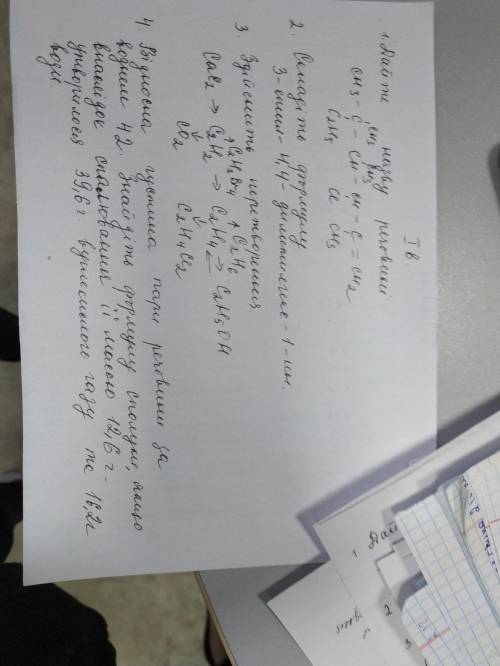 І в
1. Дайте назву речовині
CH3 CH3
CH3 - C - CH - CH - C = CH2
C2H5 Cl CH3
2. Складіть формулу
3-етил-4,4-диметилгекс-1-ин.
3 Здійсніть перетворення
C2H2Br4 C2H6
CaC2 → C2H2 → C2H4 → C2H5OH
CO2 C2H4Cl2
4. Відносна густина пари речовини за
воднем 42. Знайдіть формулу сполуки, якщо
внаслідок спалювання її масою 12,6 г -
утворилося 39,6 г вуглекислого газу та 16,2 г
води.
1. Дай
2
3